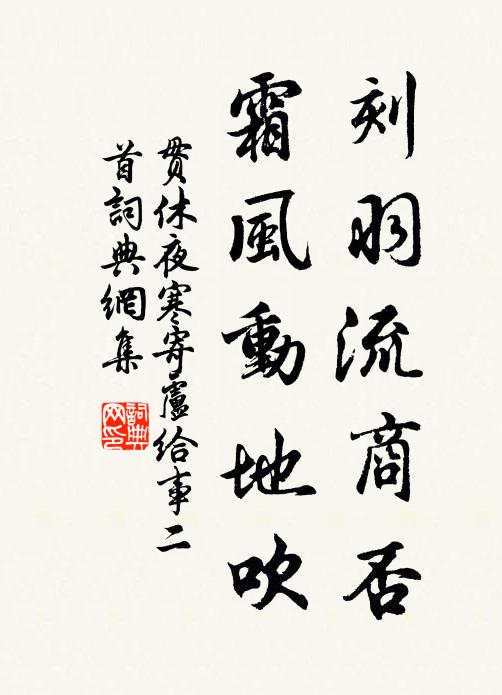 刻羽流商否
霜風動地吹
貫休夜寒寄盧給事二
首詞典網集
詞典
网印